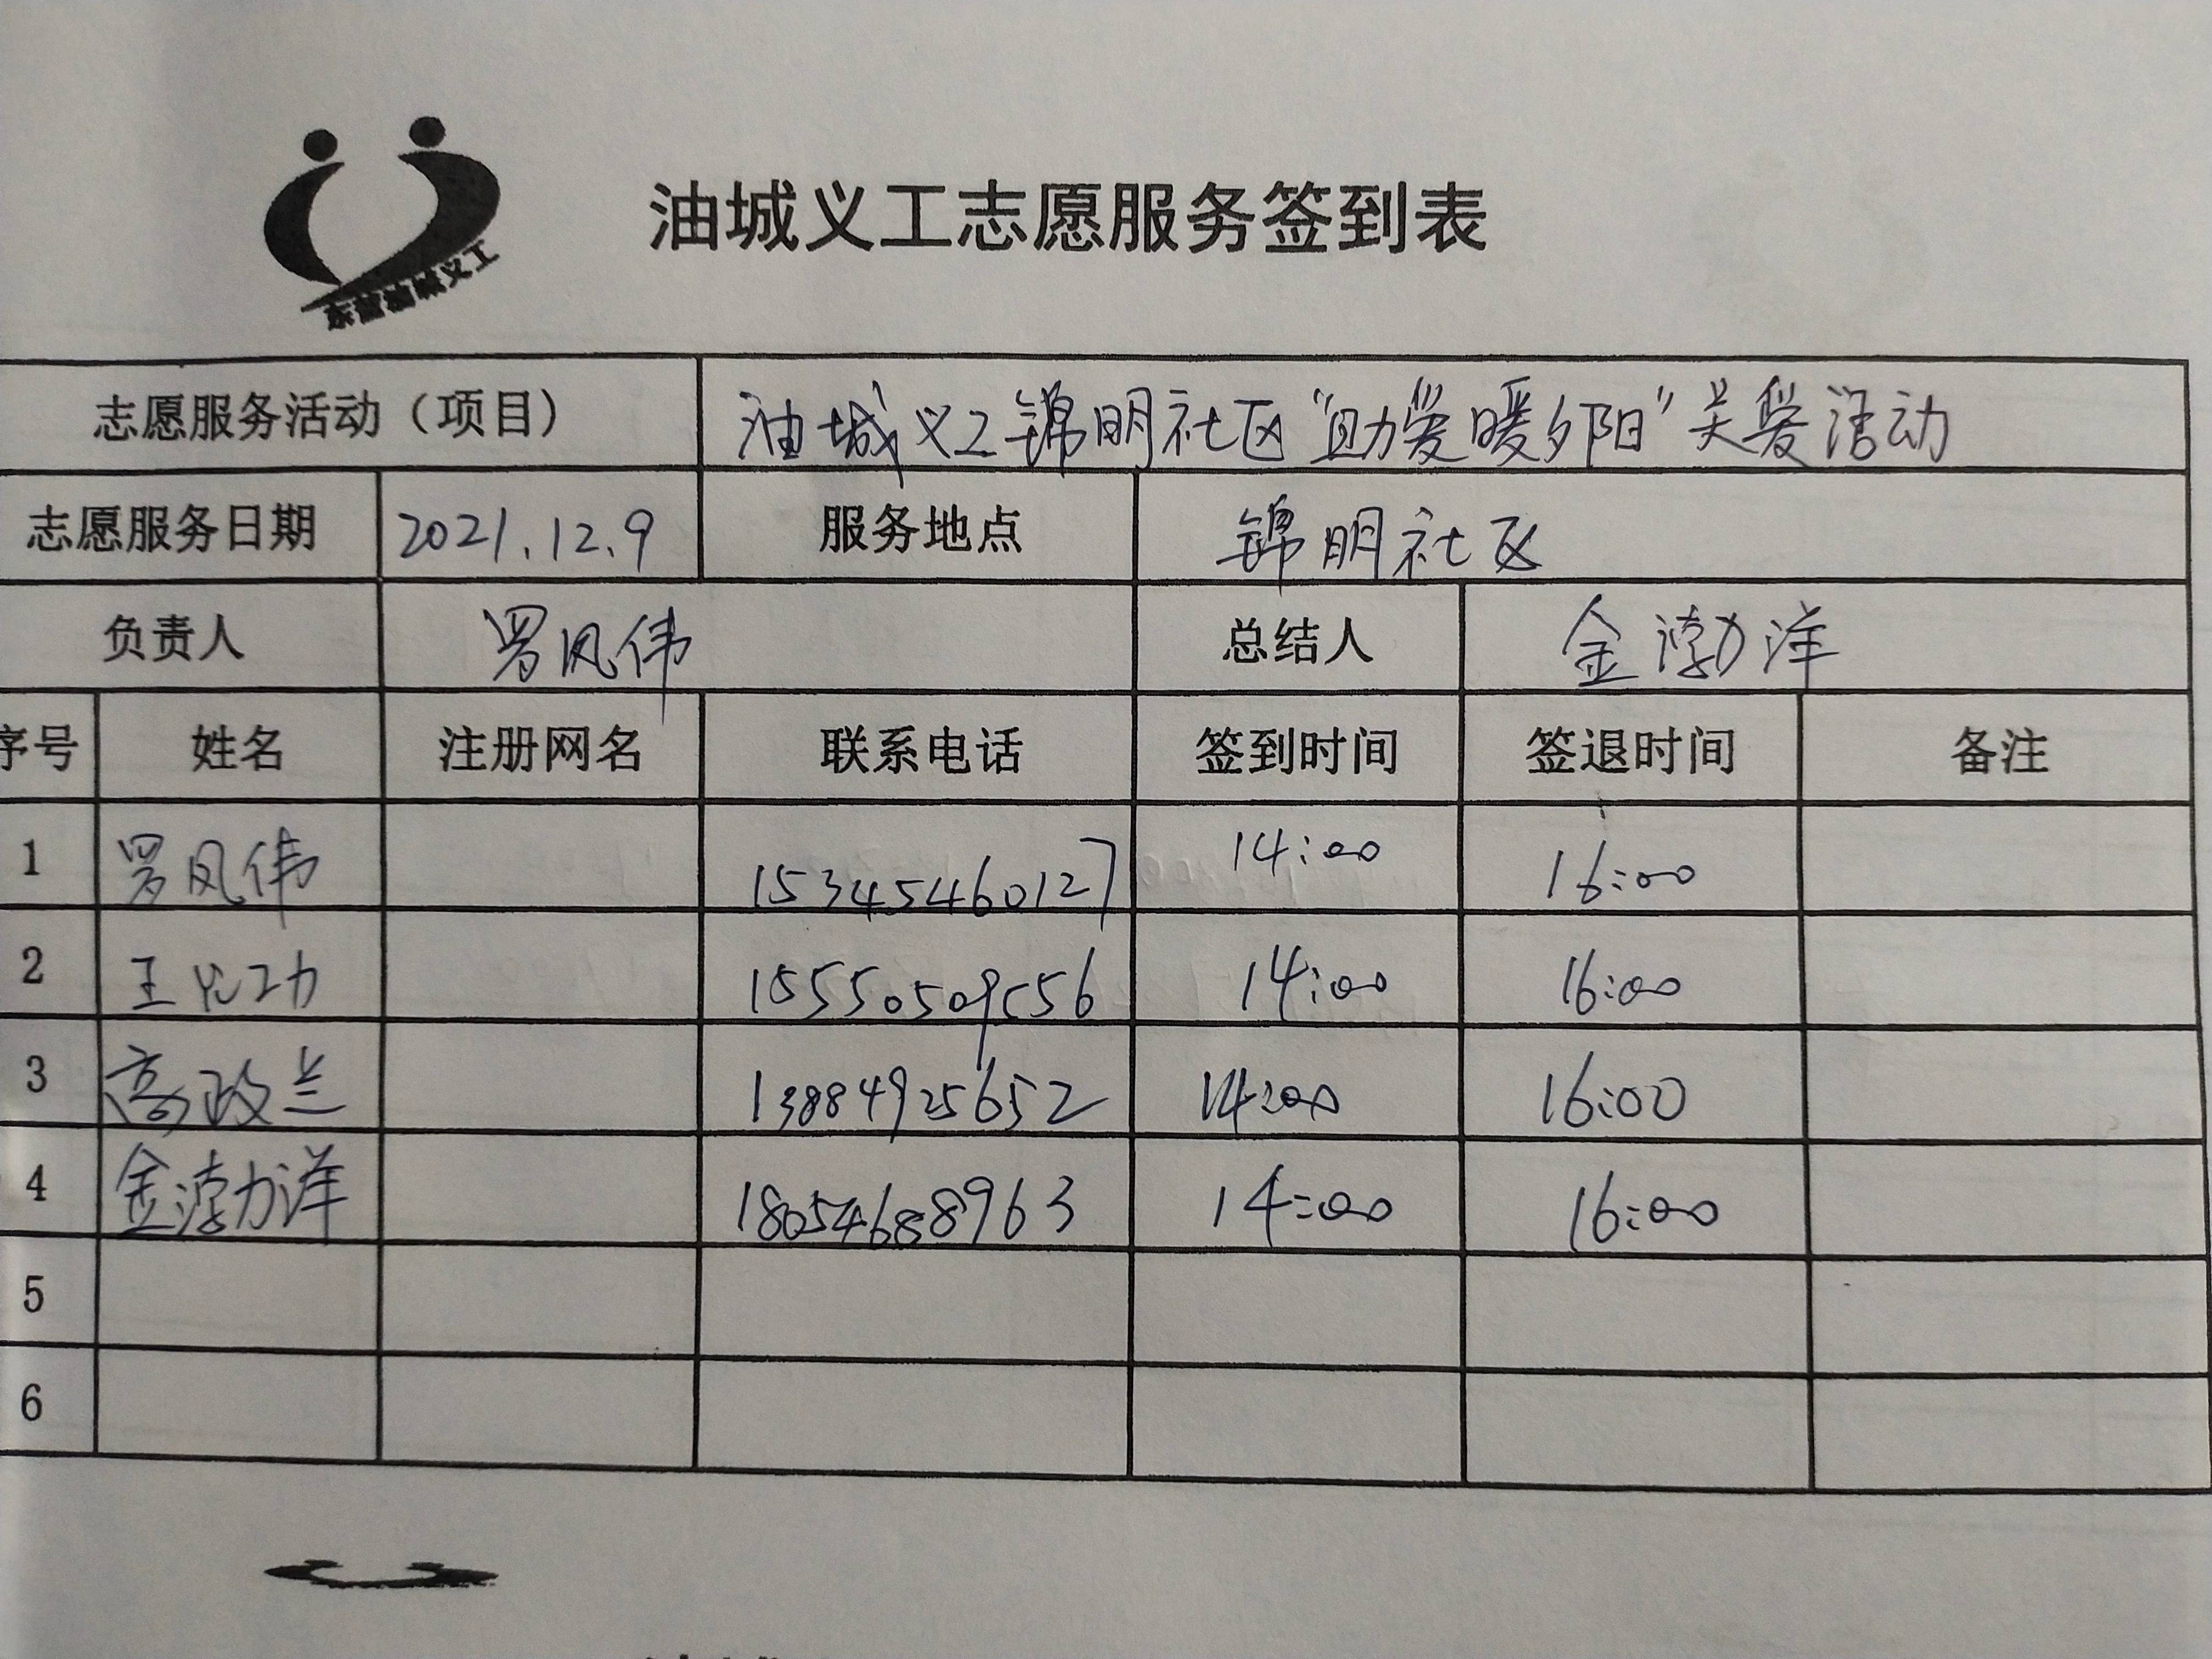 东营油城义工
油城义工志愿服务签到表
志愿服务活动（项目） 油城义工锦明社区“助爱暖夕阳”关爱活动
志愿服务日期 2021.12.9 服务地点 锦明社区
负责人 罗凤伟 总结人 金渤洋
序号 姓名 注册网名 联系电话 签到时间 签退时间 备注
1 罗凤伟 15345460127 14:00 16:00
2 15550509556 14:00 16:00
3 高政兰 13884925652 14:00 16:00
4 金渤洋 18054688963 14:00 16:00
5
6